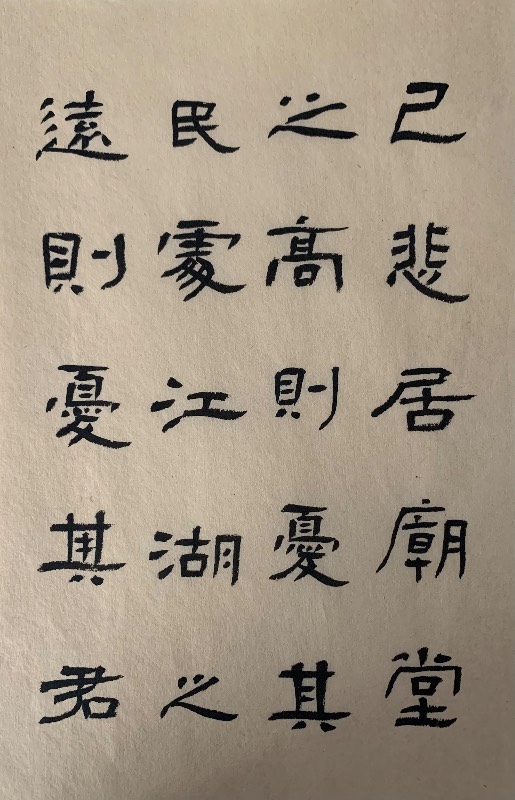 己悲居廟堂
之高則憂其
民處江湖之
遠則憂其君